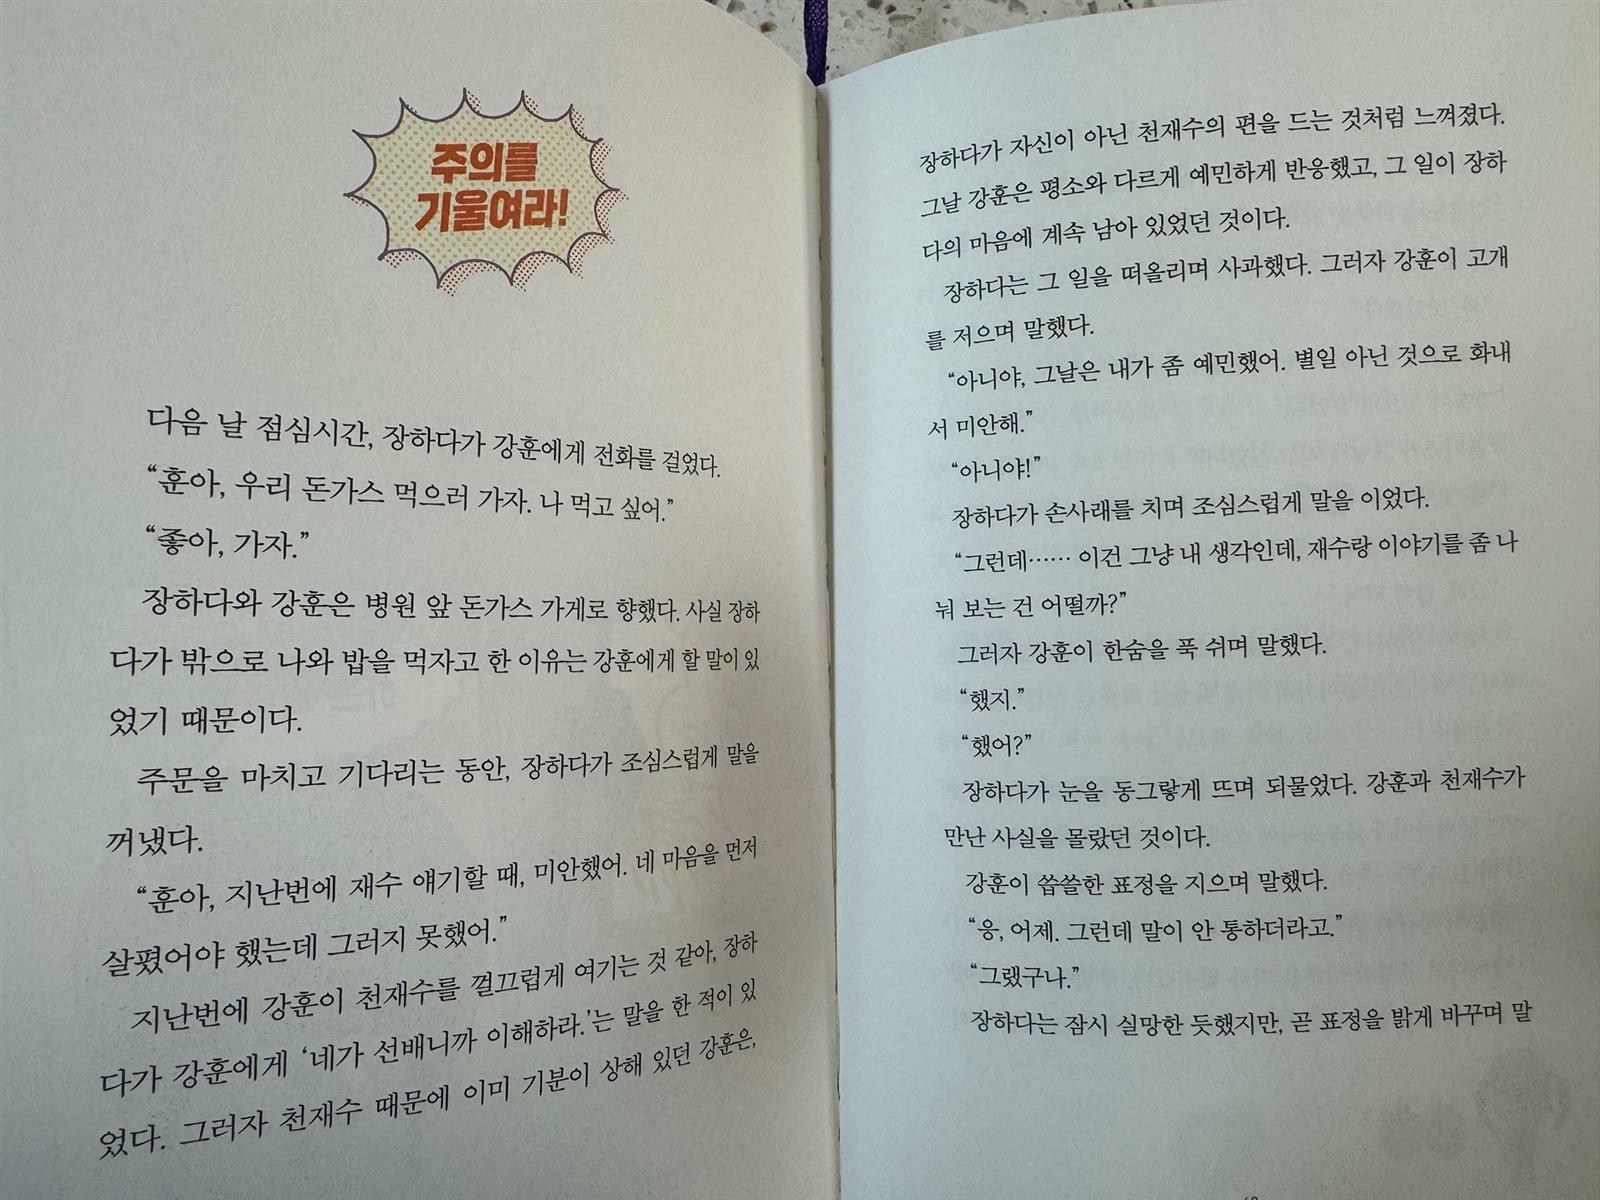 주의를
기울여라!
다음 날 점심시간, 장하다가 강훈에게 전화를 걸었다.
“훈아, 우리 돈가스 먹으러 가자. 나 먹고 싶어.”
“좋아, 가자.”
장하다와 강훈은 병원 앞 돈가스 가게로 향했다. 사실 장하
다가 밖으로 나와 밥을 먹자고 한 이유는 강훈에게 할 말이 있
었기 때문이다.
주문을 마치고 기다리는 동안, 장하다가 조심스럽게 말을
꺼냈다.
“훈아, 지난번에 재수 얘기할 때, 미안했어. 네 마음을 먼저
살폈어야 했는데 그러지 못했어.”
지난번에 강훈이 천재수를 껄끄럽게 여기는 것 같아, 장하
다가 강훈에게 ‘네가 선배니까 이해하라.’는 말을 한 적이 있
었다. 그러자 천재수 때문에 이미 기분이 상해 있던 강훈은,
장하다가 자신이 아닌 천재수의 편을 드는 것처럼 느껴졌다.
그날 강훈은 평소와 다르게 예민하게 반응했고, 그 일이 장하
다의 마음에 계속 남아 있었던 것이다.
장하다는 그 일을 떠올리며 사과했다. 그러자 강훈이 고개
를 저으며 말했다.
“아니야, 그날은 내가 좀 예민했어. 별일 아닌 것으로 화내
서 미안해.”
“아니야!”
장하다가 손사래를 치며 조심스럽게 말을 이었다.
“그런데…… 이건 그냥 내 생각인데, 재수랑 이야기를 좀 나
눠 보는 건 어떨까?”
그러자 강훈이 한숨을 푹 쉬며 말했다.
“했지.”
“했어?”
장하다가 눈을 동그랗게 뜨며 되물었다. 강훈과 천재수가
만난 사실을 몰랐던 것이다.
강훈이 씁쓸한 표정을 지으며 말했다.
“응, 어제. 그런데 말이 안 통하더라고.”
“그랬구나.”
장하다는 잠시 실망한 듯했지만, 곧 표정을 밝게 바꾸며 말